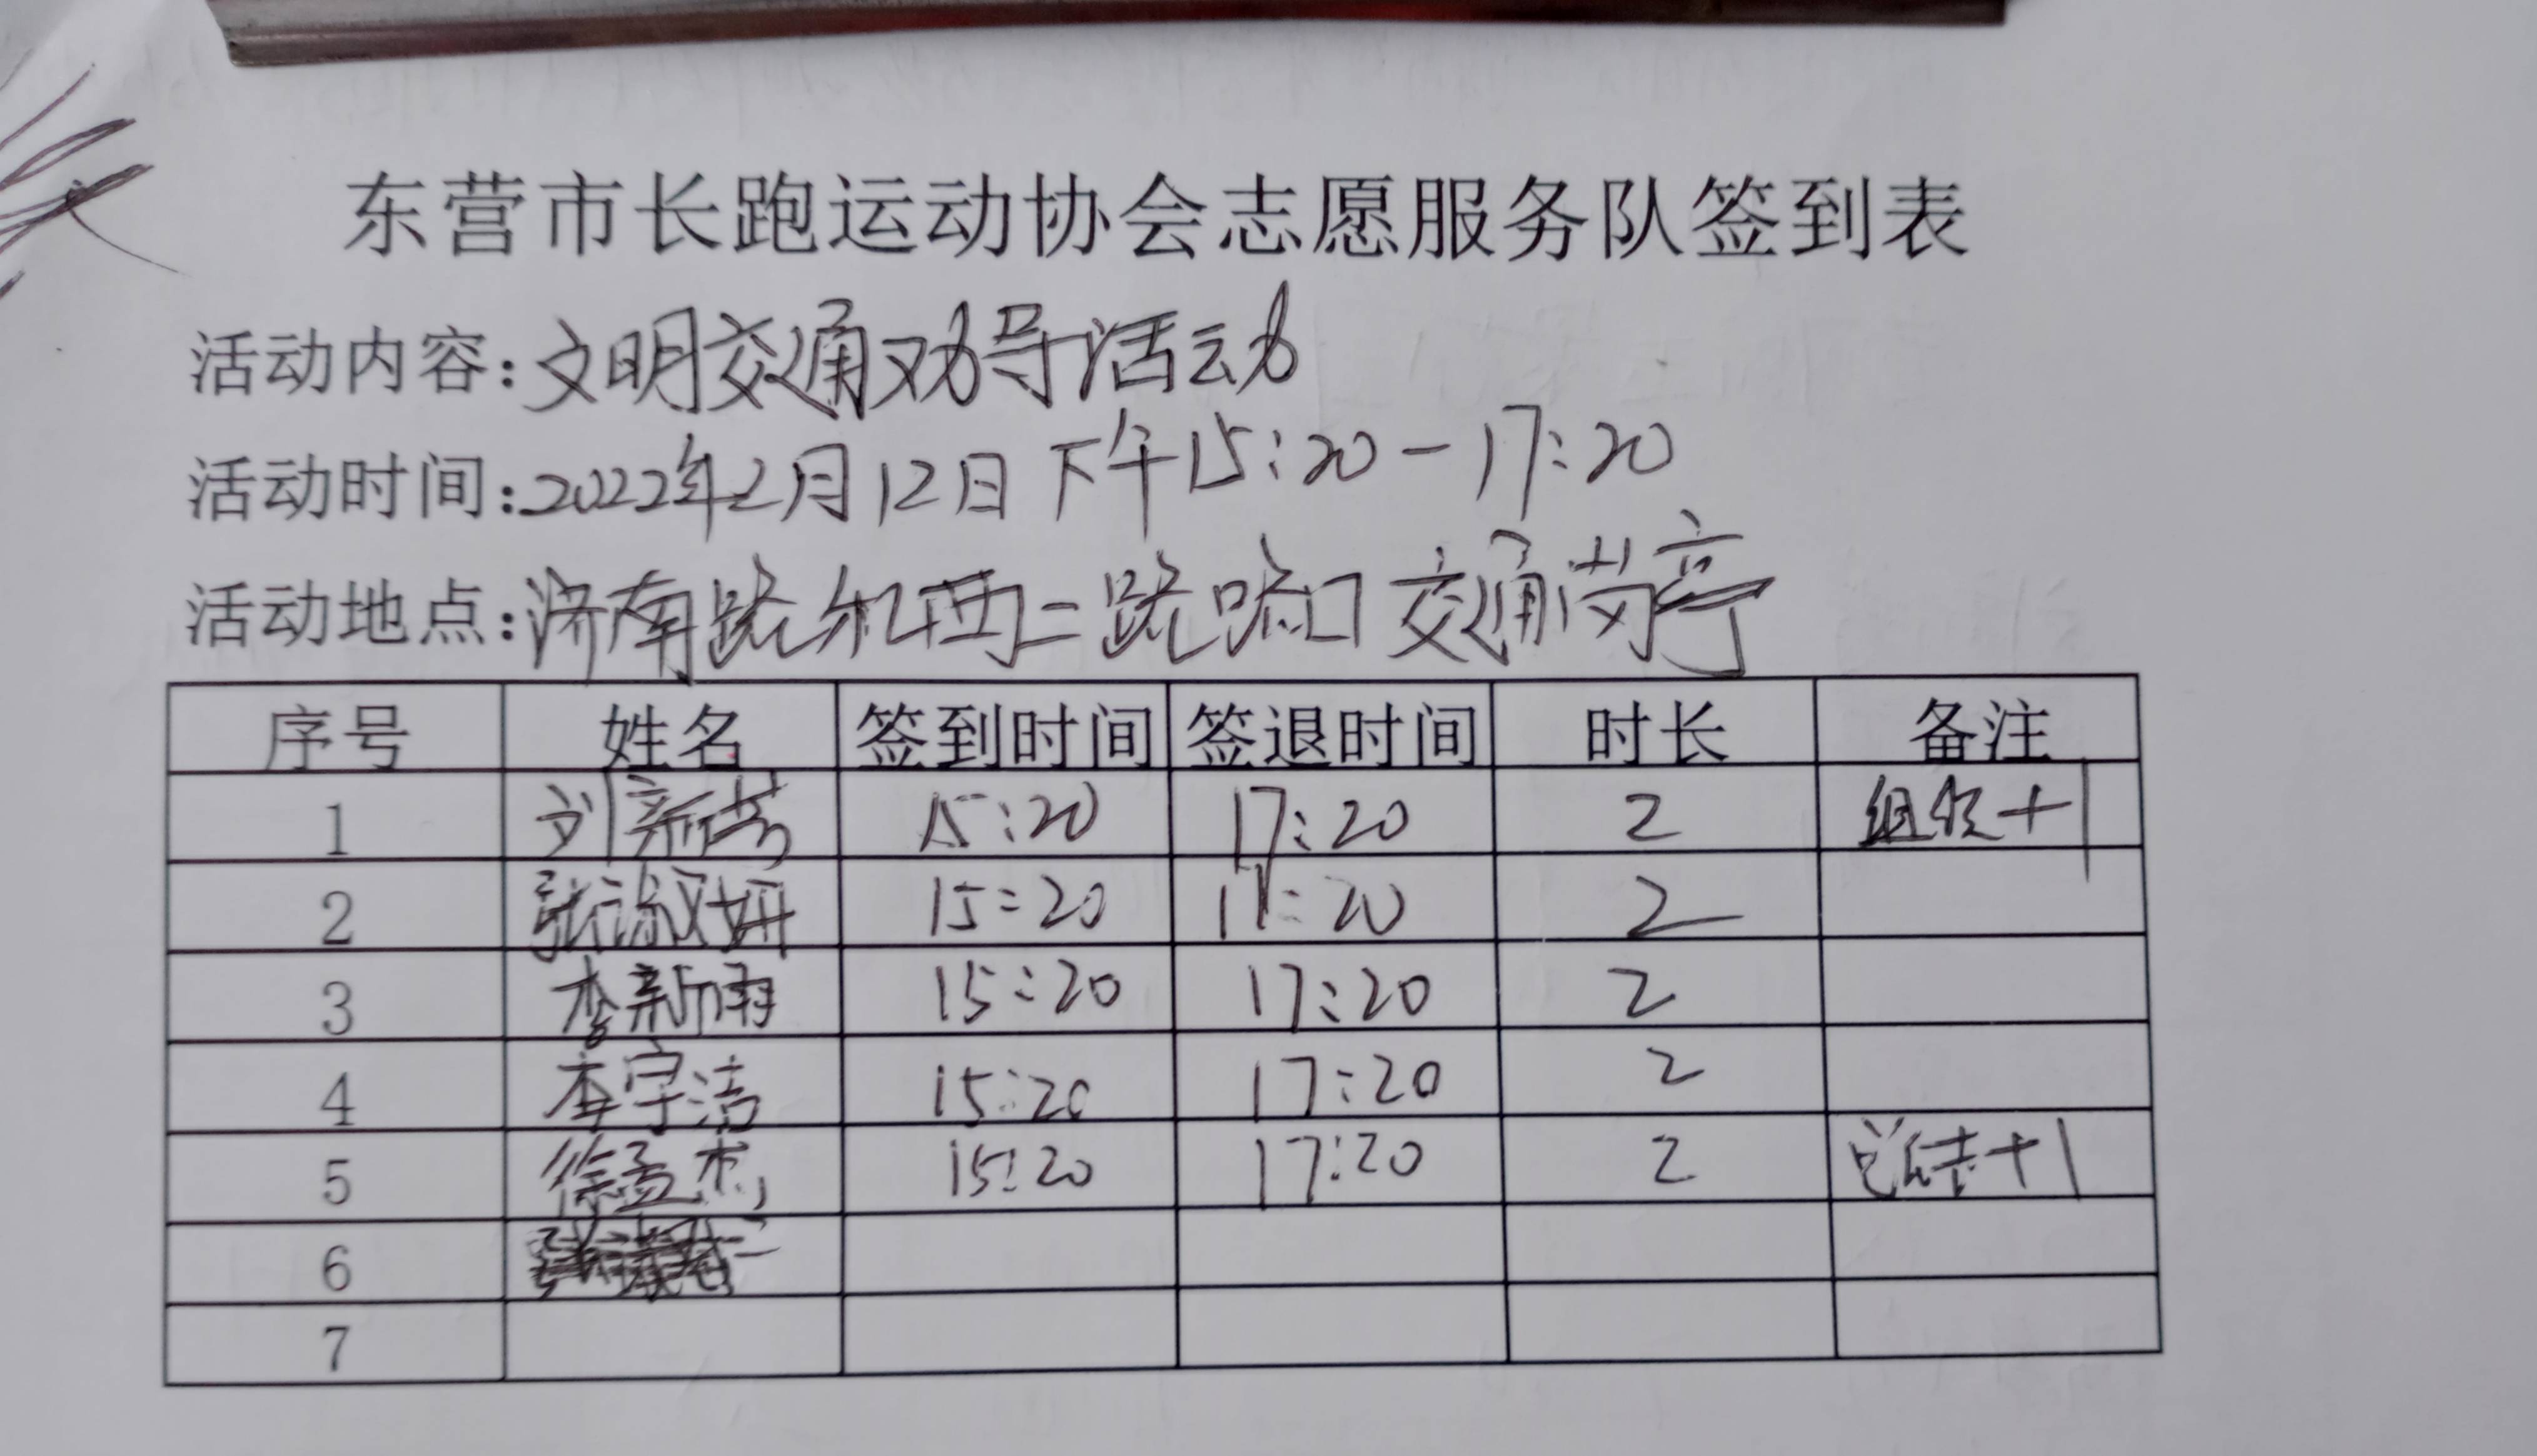 东营市长跑运动协会志愿服务队签到表
活动内容：文明交通劝导活动
活动时间：2022年2月12日下午15:20-17:20
活动地点：济南路和西二路路口交通岗亭
序号 姓名 签到时间 签退时间 时长 备注
1 刘新芳 15:20 17:20 2 组织+1
2 张淑妍 15:20 17:20 2
3 李新雨 15:20 17:20 2
4 李宇洁 15:20 17:20 2
5 徐孟杰 15:20 17:20 2 总结+1
6
7